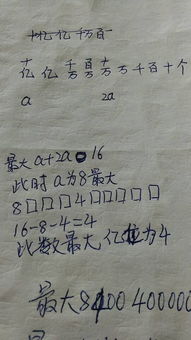 十亿 亿 千万百
十亿 亿 千万 百万 十万 万 千 百 十 个
a 2a
最大 a+2a=16
此时 a为8最大
8□□□4□□□□□
16-8-4=4
此数最大 亿位为4
最大8400400000